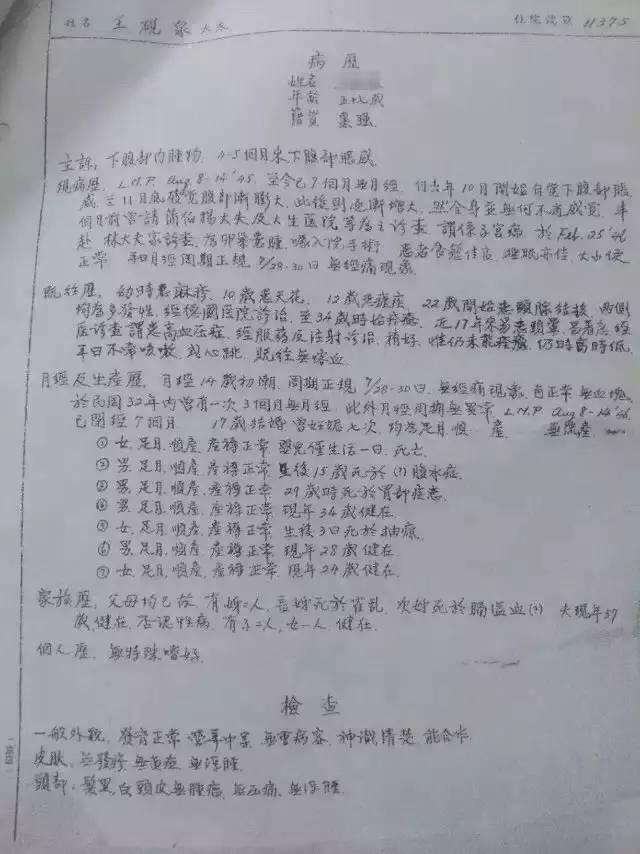 姓名 王硯泉太太 住院號數 11375
病歷
姓名
年齡 五十七歲
籍貫 棗强
主訴，下腹部內腫物，4-5個月來下腹部脹感
現病歷，L.M.P. Aug 8-14'45，至今已7個月無月經，自去年10月開始自覺下腹部脹
感，至11月底發覺腹部漸膨大，此後則逐漸增大，然全身並無何不適感覺，
個月前曾請 大夫及大生醫院等 診查，謂係子宮病，於Feb. 25'46
赴林大夫 診查，為卵巢囊腫，囑入院手術 患者食慾佳良，睡眠亦佳，大小便
正常 月經周期正規 7/28-30日 無經痛現象
既往歷，幼時患麻疹，10歲患天花，12歲患瘧疾，22歲開始患頸腺結核，兩側
均為多發性，經德國醫院診治，至34歲時始痊癒，近17年來易患頭暈，
診查謂患高血压症，經服藥及注射診治，稍好，惟仍未能痊癒，仍時高時低
平日不常咳嗽 及心跳，既往無咯血
月經及生產歷，月經14歲初潮，周期正規 7/28-30日，無經痛現象，色正常，無血塊，
於民國32年內曾有一次3個月無月經，此外月經周期無異常 L.M.P. Aug 8-14'
已閉經7個月 17歲結婚，曾妊娠七次，均為足月順產 無流產
① 女，足月，順產，產褥正常，嬰兒僅生活一日，死亡
② 男，足月，順產，產褥正常，生後15歲死於(?)腹水症
③ 男，足月，順產，產褥正常，29歲時死於胃部疾患
④ 男，足月，順產，產褥正常，現年34歲健在
⑤ 女，足月，順產，產褥正常，生後3日死於抽瘋
⑥ 男，足月，順產，產褥正常，現年28歲健在
⑦ 女，足月，順產，產褥正常，現年24歲健在
家族歷，父母均已故，有姊二人，長姊死於霍乱，次姊死於腦溢血(?) 夫現年59
歲健在，否認性病，有子二人，女一人，健在
個人歷，無特殊嗜好
檢查
一般外觀，發育正常，營養中等，無重病容，神識清楚，能合作
皮膚，無發疹，無黃症，無浮腫
頭部，髮黑白，頭皮無腫瘤，無压痛，無浮腫